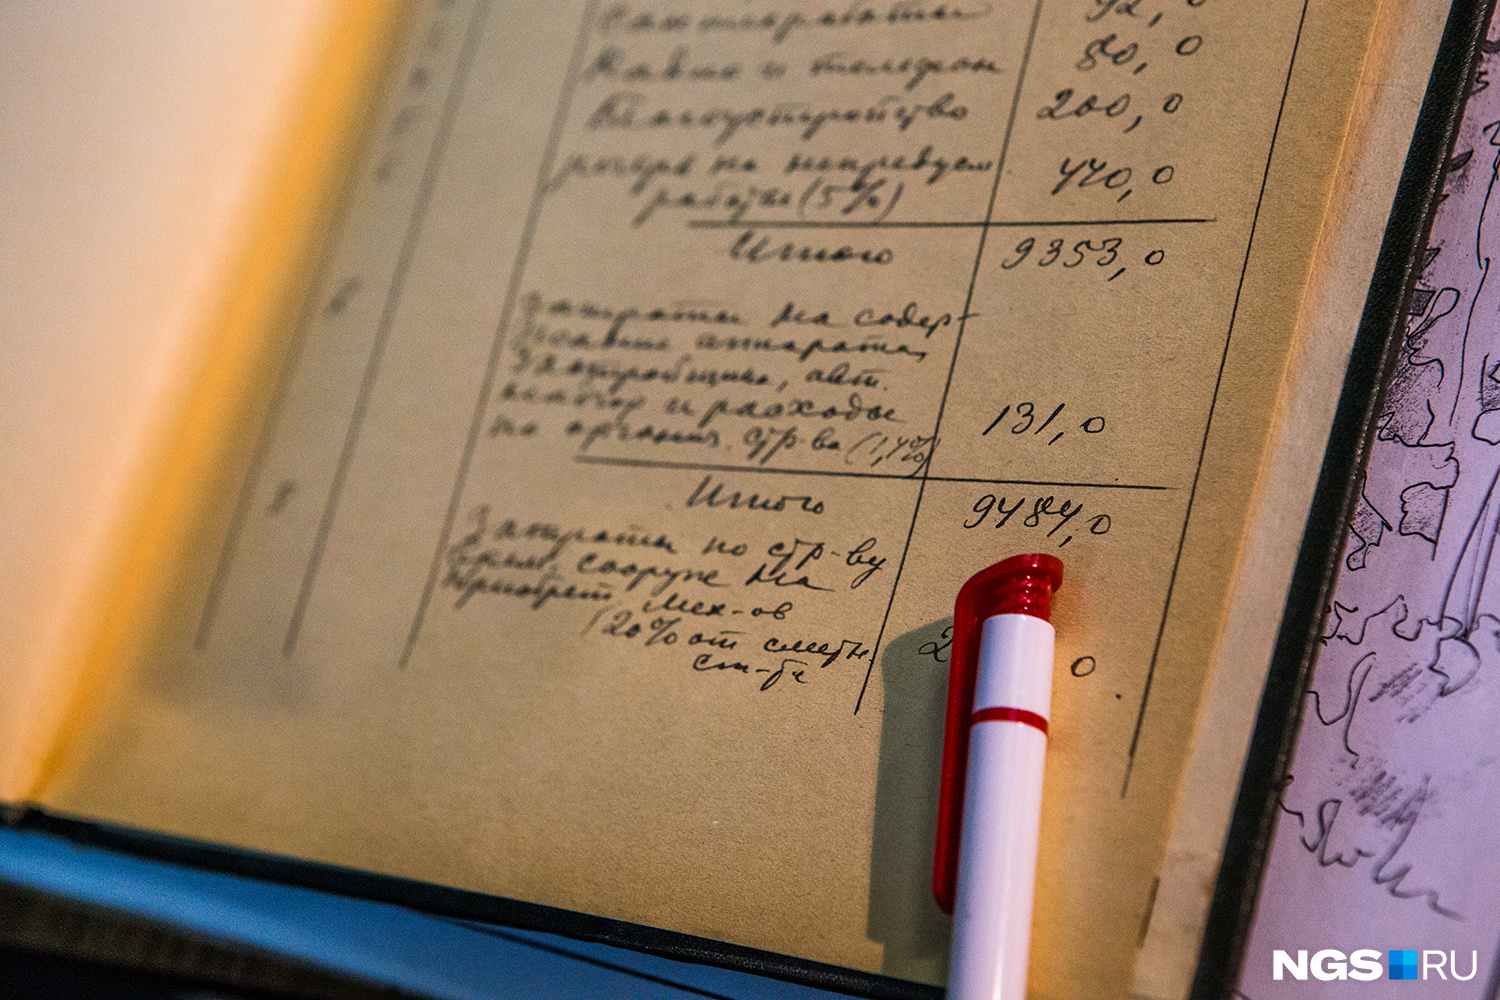 Сантехработы 92,0
и телефон 80,0
Благоустройство 200,0
резерв на непредвден. 440,0
работы (5%)
Итого 9353,0
6
Затраты на содер-
жание аппарата
Застройщика, авт.
надзор и расходы
на организ. стр-ва (1,4%) 131,0
Итого 9484,0
8
Затраты по стр-ву
врем. сооруж на
приобрет. мех-ов
(20% от сметн. 2 0
ст-ти
NGS RU